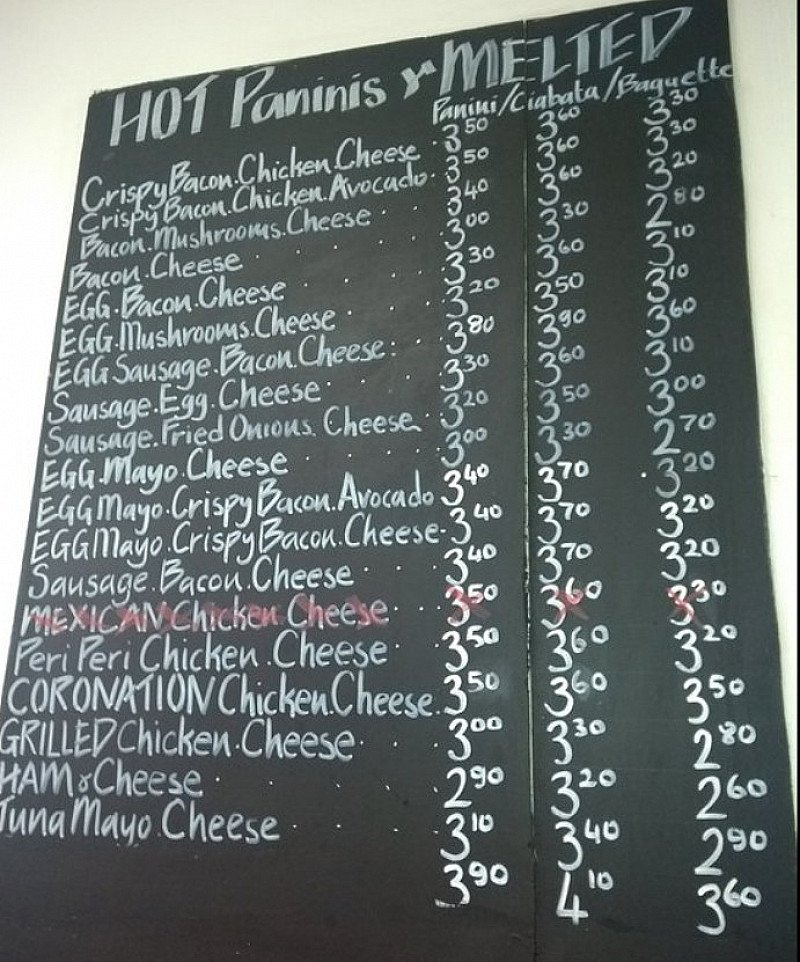 HOT Paninis & MELTED
Panini/Ciabata/Baguette
Crispy Bacon.Chicken.Cheese 3 50 3 60 3 30
Crispy Bacon.Chicken.Avocado 3 50 3 60 3 30
Bacon.Mushrooms.Cheese 3 40 3 60 3 20
Bacon.Cheese 3 00 3 30 2 80
EGG.Bacon.Cheese 3 30 3 60 3 10
EGG.Mushrooms.Cheese 3 20 3 50 3 10
EGG Sausage.Bacon.Cheese 3 80 3 90 3 60
Sausage.Egg.Cheese 3 30 3 60 3 10
Sausage.Fried Onions.Cheese 3 20 3 50 3 00
EGG.Mayo.Cheese 3 00 3 30 2 70
EGG Mayo.Crispy Bacon.Avocado 3 40 3 70 3 20
EGG Mayo.Crispy Bacon.Cheese 3 40 3 70 3 20
Sausage.Bacon.Cheese 3 40 3 70 3 20
MEXICAN Chicken Cheese 3 50 3 60 3 30
Peri Peri Chicken.Cheese 3 50 3 60 3 20
CORONATION Chicken.Cheese 3 50 3 60 3 50
GRILLED Chicken.Cheese 3 00 3 30 2 80
HAM & Cheese 2 90 3 20 2 60
Tuna Mayo.Cheese 3 10 3 40 2 90
3 90 4 10 3 60